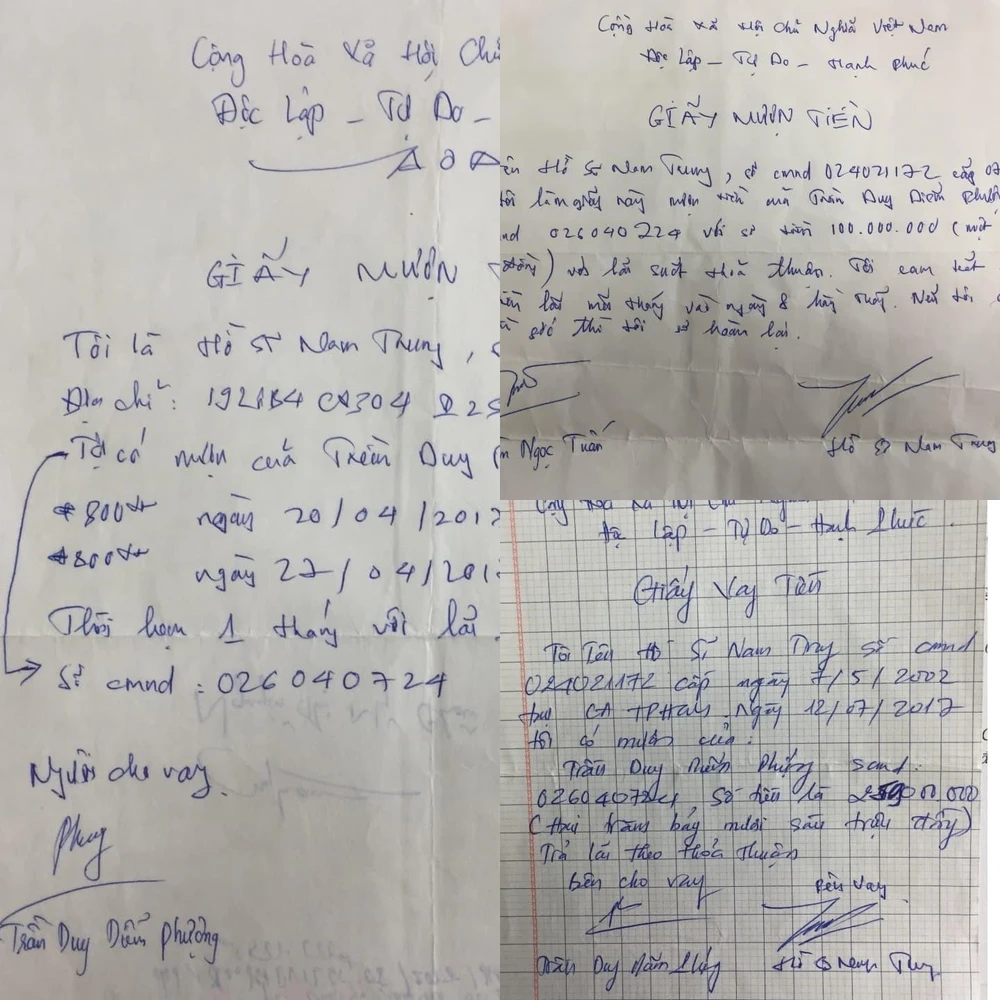 Cộng Hoà Xã Hội Chủ
Độc Lập - Tự Do -
GIẤY MƯỢN
Tôi là Hồ Sĩ Nam Trung,
Địa chỉ: 192
Tôi có mượn của Trần Duy
800tr ngày 20/04/2017
800tr ngày 27/04/201
Thời hạn 1 tháng với lãi
Số cmnd: 026040724
Người cho vay
Phụng
Trần Duy Diễm Phượng
Cộng Hoà Xã Hội Chủ Nghĩa Việt Nam
Độc Lập - Tự Do - Hạnh Phúc
GIẤY MƯỢN TIỀN
ên Hồ Sĩ Nam Trung, số cmnd 024021172 cấp 07
tôi làm giấy này mượn tiền của Trần Duy Diễm Phượ
nd 026040724 với số tiền 100.000.000 (một
đồng) với lãi suất thoã thuận. Tôi cam kết
lãi mỗi tháng vào ngày 8 hằng tháng. Nếu tôi
thì tôi sẽ hoàn lại.
Ngọc Tuấn
Hồ Sĩ Nam Trung
Độc Lập - Tự Do - Hạnh Phúc.
Giấy Vay Tiền
Tôi Tên Hồ Sĩ Nam Trung số cmnd
024021172 cấp ngày 7/5/2002
tại CA TPHCM. Ngày 12/07/2017
tôi có mượn của:
Trần Duy Diễm Phượng
026040724, số tiền là
(Hai trăm bảy mươi sáu triệu đồng)
Trả lãi theo thỏa thuận
Bên cho vay
Bên Vay
Trần Duy Diễm Phượng
Hồ Sĩ Nam Trung